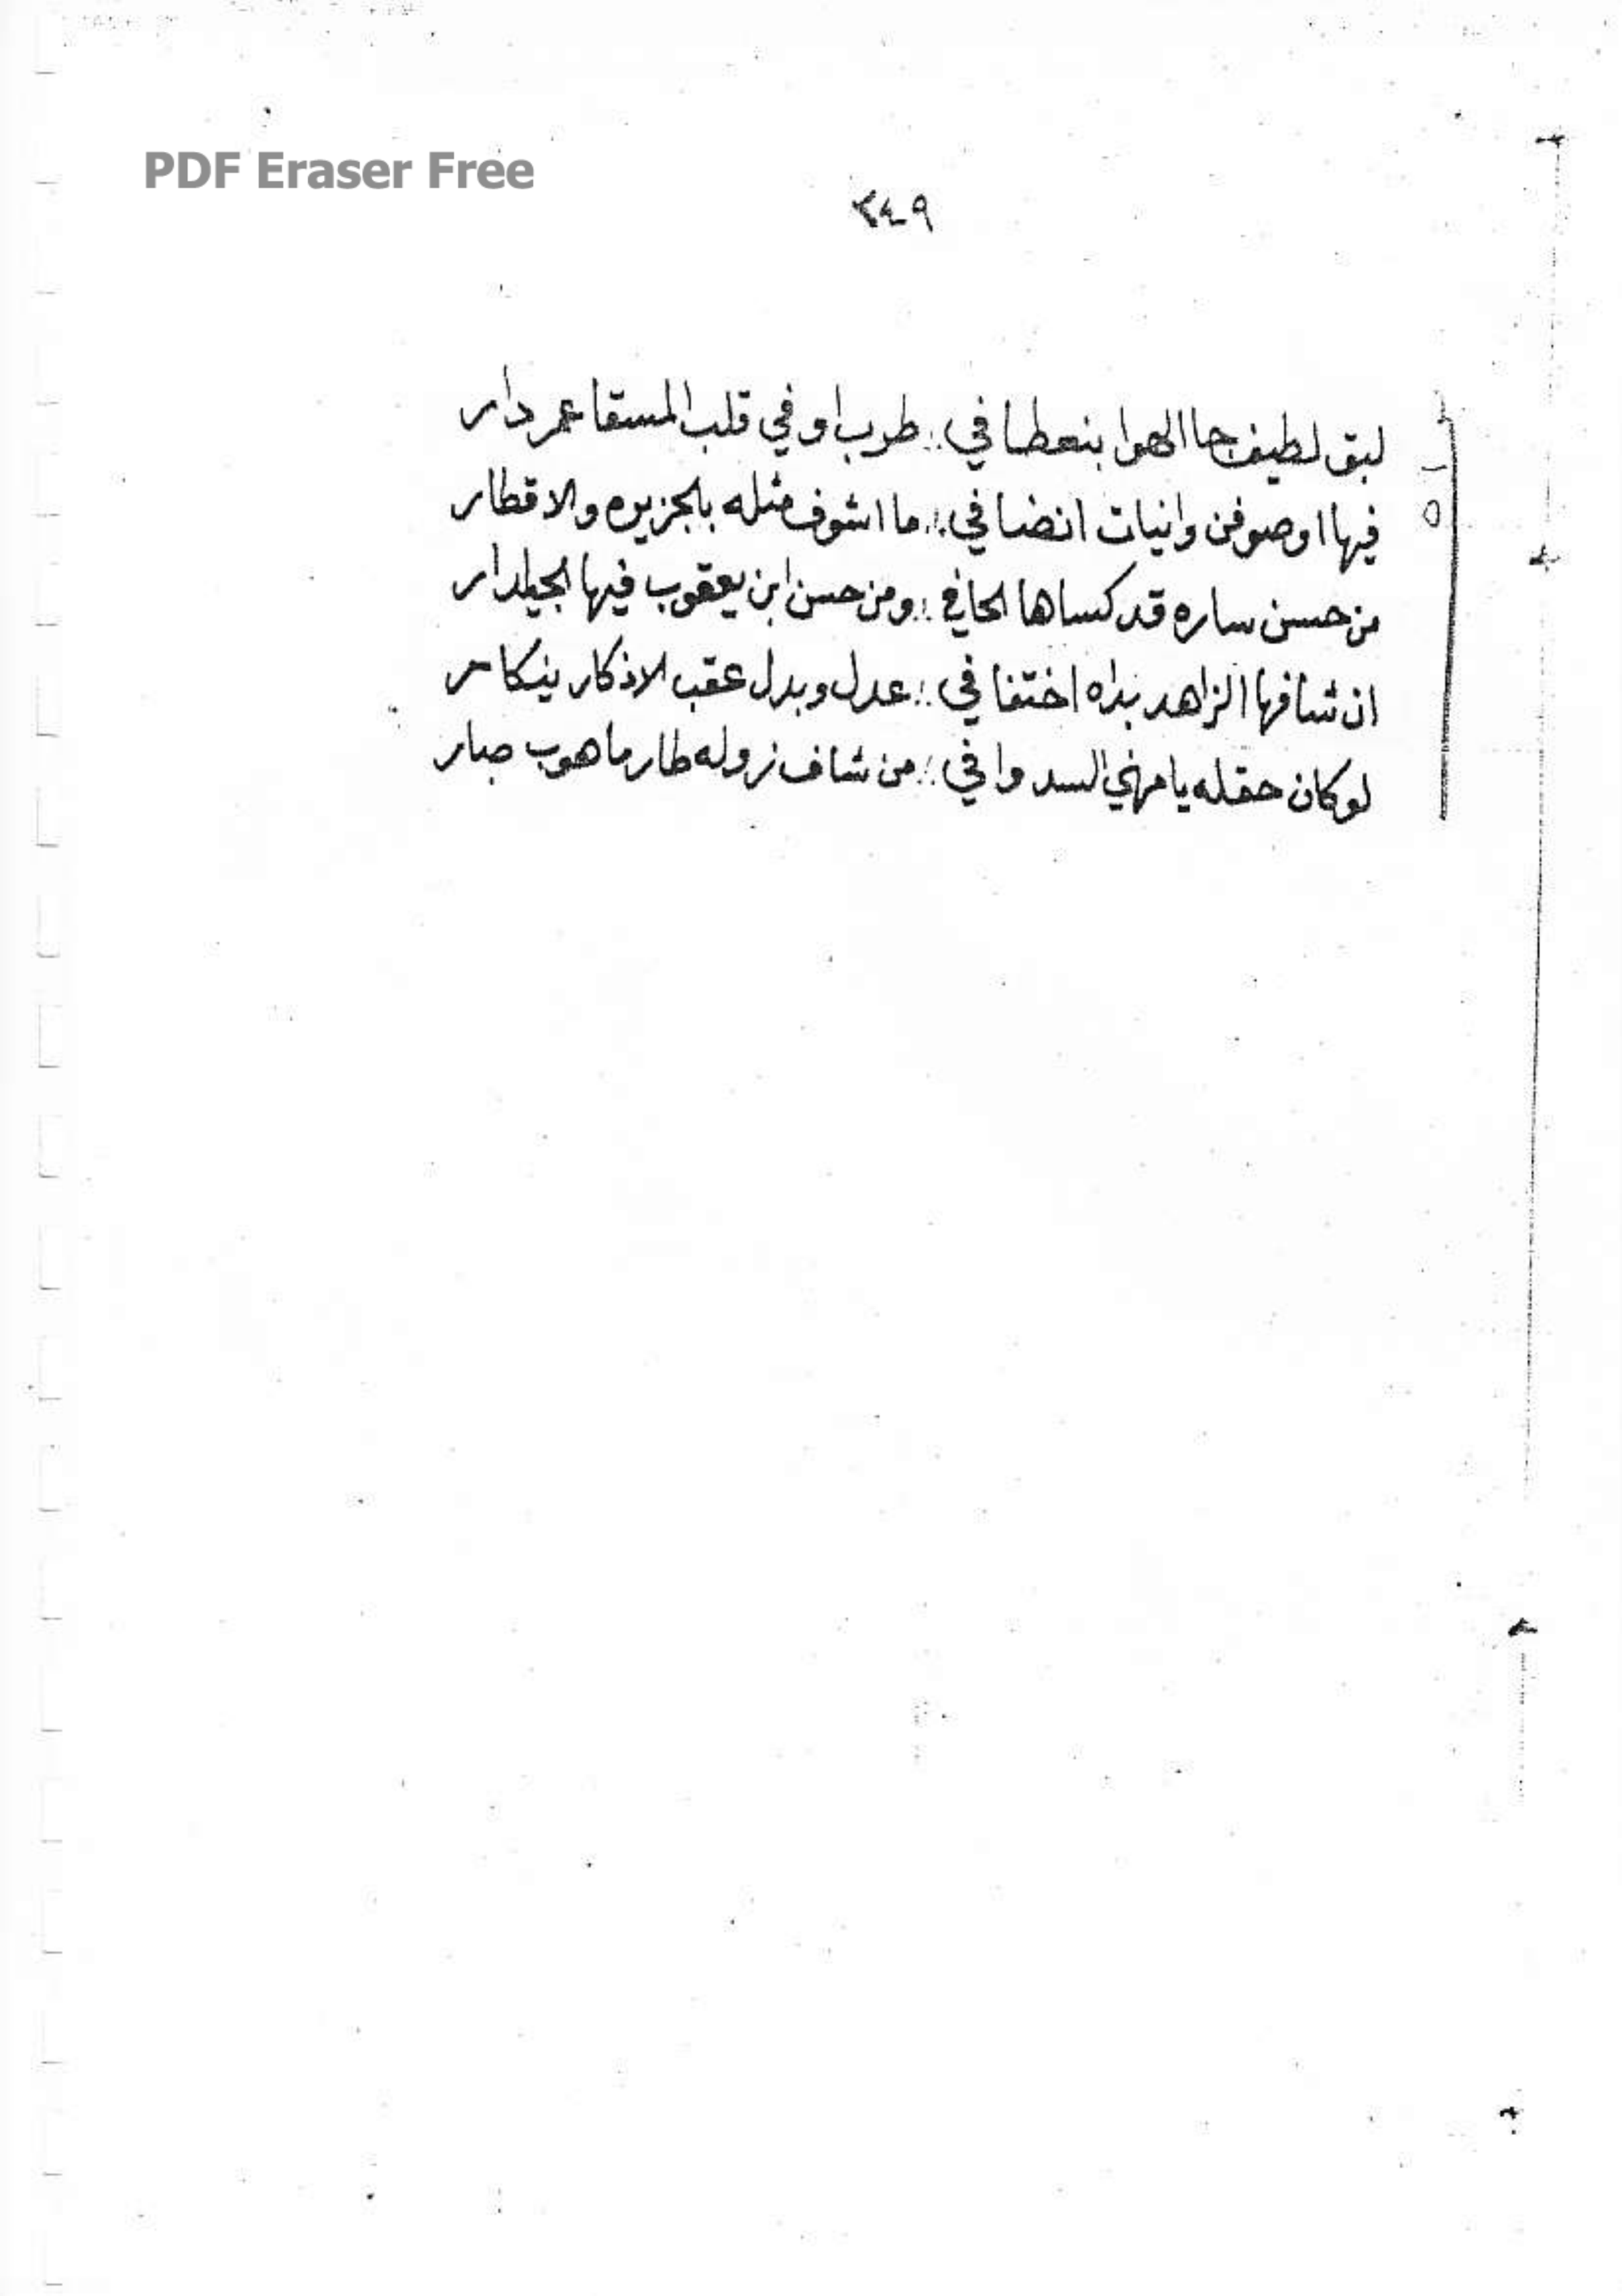 PDF Eraser Free
٣٤٩
لبق لطيف جا الهوا بنعطافي :: طرب او في قلب المسقا عمر دار
٥
فيها اوصوفن وانيات انضافي :: ما اشوف مثله بالجزيره والاقطار
من حسن ساره قد كساها الحافي :: ومن حسن ابن يعقوب فيها
ان شافها الزاهد بداه اختفا في :: عدل وبدل عقب الاذكار بنكار
لو كان حقله يا مهني السد وافي :: من شاف زوله طار ما هوب صبار